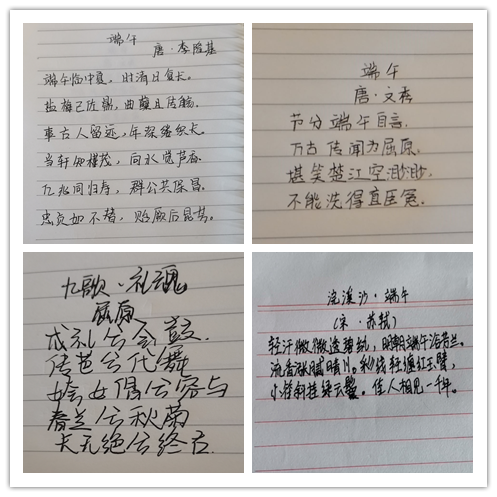 端午
唐·李隆基
端午临中夏，时清日复长。
盐梅已佐鼎，曲糵且传觞。
事古人留迹，年深缕积长。
当轩知槿茂，向水觉芦香。
亿兆同归寿，群公共保昌。
忠贞如不替，贻厥后昆芳。
端午
唐·文秀
节分端午自谁言.
万古传闻为屈原.
堪笑楚江空渺渺.
不能洗得直臣冤.
九歌·礼魂
屈原
成礼兮会鼓.
传芭兮代舞
姱女倡兮容与
春兰兮秋菊
长无绝兮终古.
浣溪沙·端午
(宋·苏轼)
轻汗微微透碧纨，明朝端午浴芳兰。
流香涨腻满晴川。彩线轻缠红玉臂，
小符斜挂绿云鬟。佳人相见一千年。